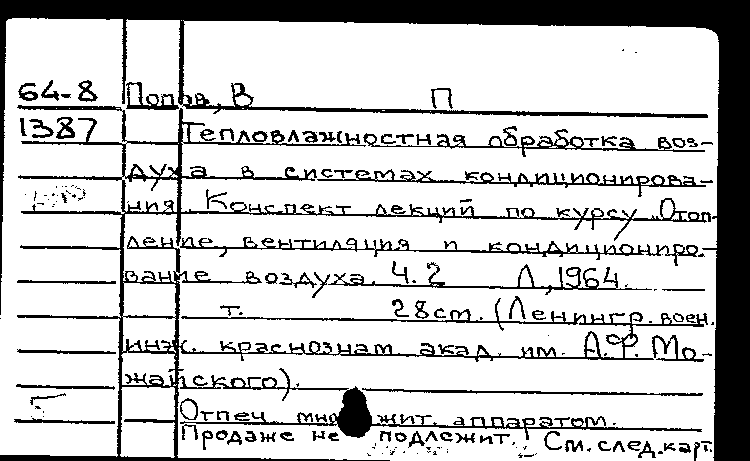 64-8 Попов, В П
1387 Тепловлажностная обработка воз-
духа в системах кондиционирова-
ния. Конспект лекций по курсу Отоп
ление, вентиляция и кондициониро-
вание воздуха. Ч.2 Л., 1964.
т. 28см. (Ленингр. воен.
инж. краснознам акад. им. А.Ф. Мо-
жайского).
Отпеч мно жит. аппаратом.
Продаже не подлежит. См. след. карт.